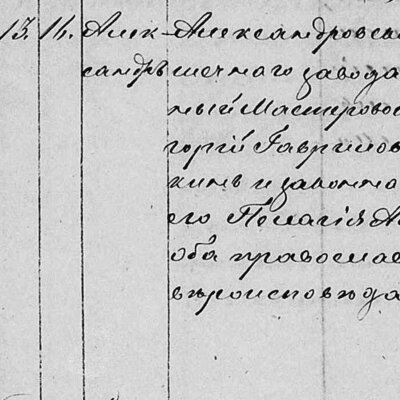 13. 14. Алек- Александровска
сандръ шечнаго завода
ный Мастерово
горгій Гаврилов
кинъ и законна
его Пелагія А
оба православ
вѣроисповѣда